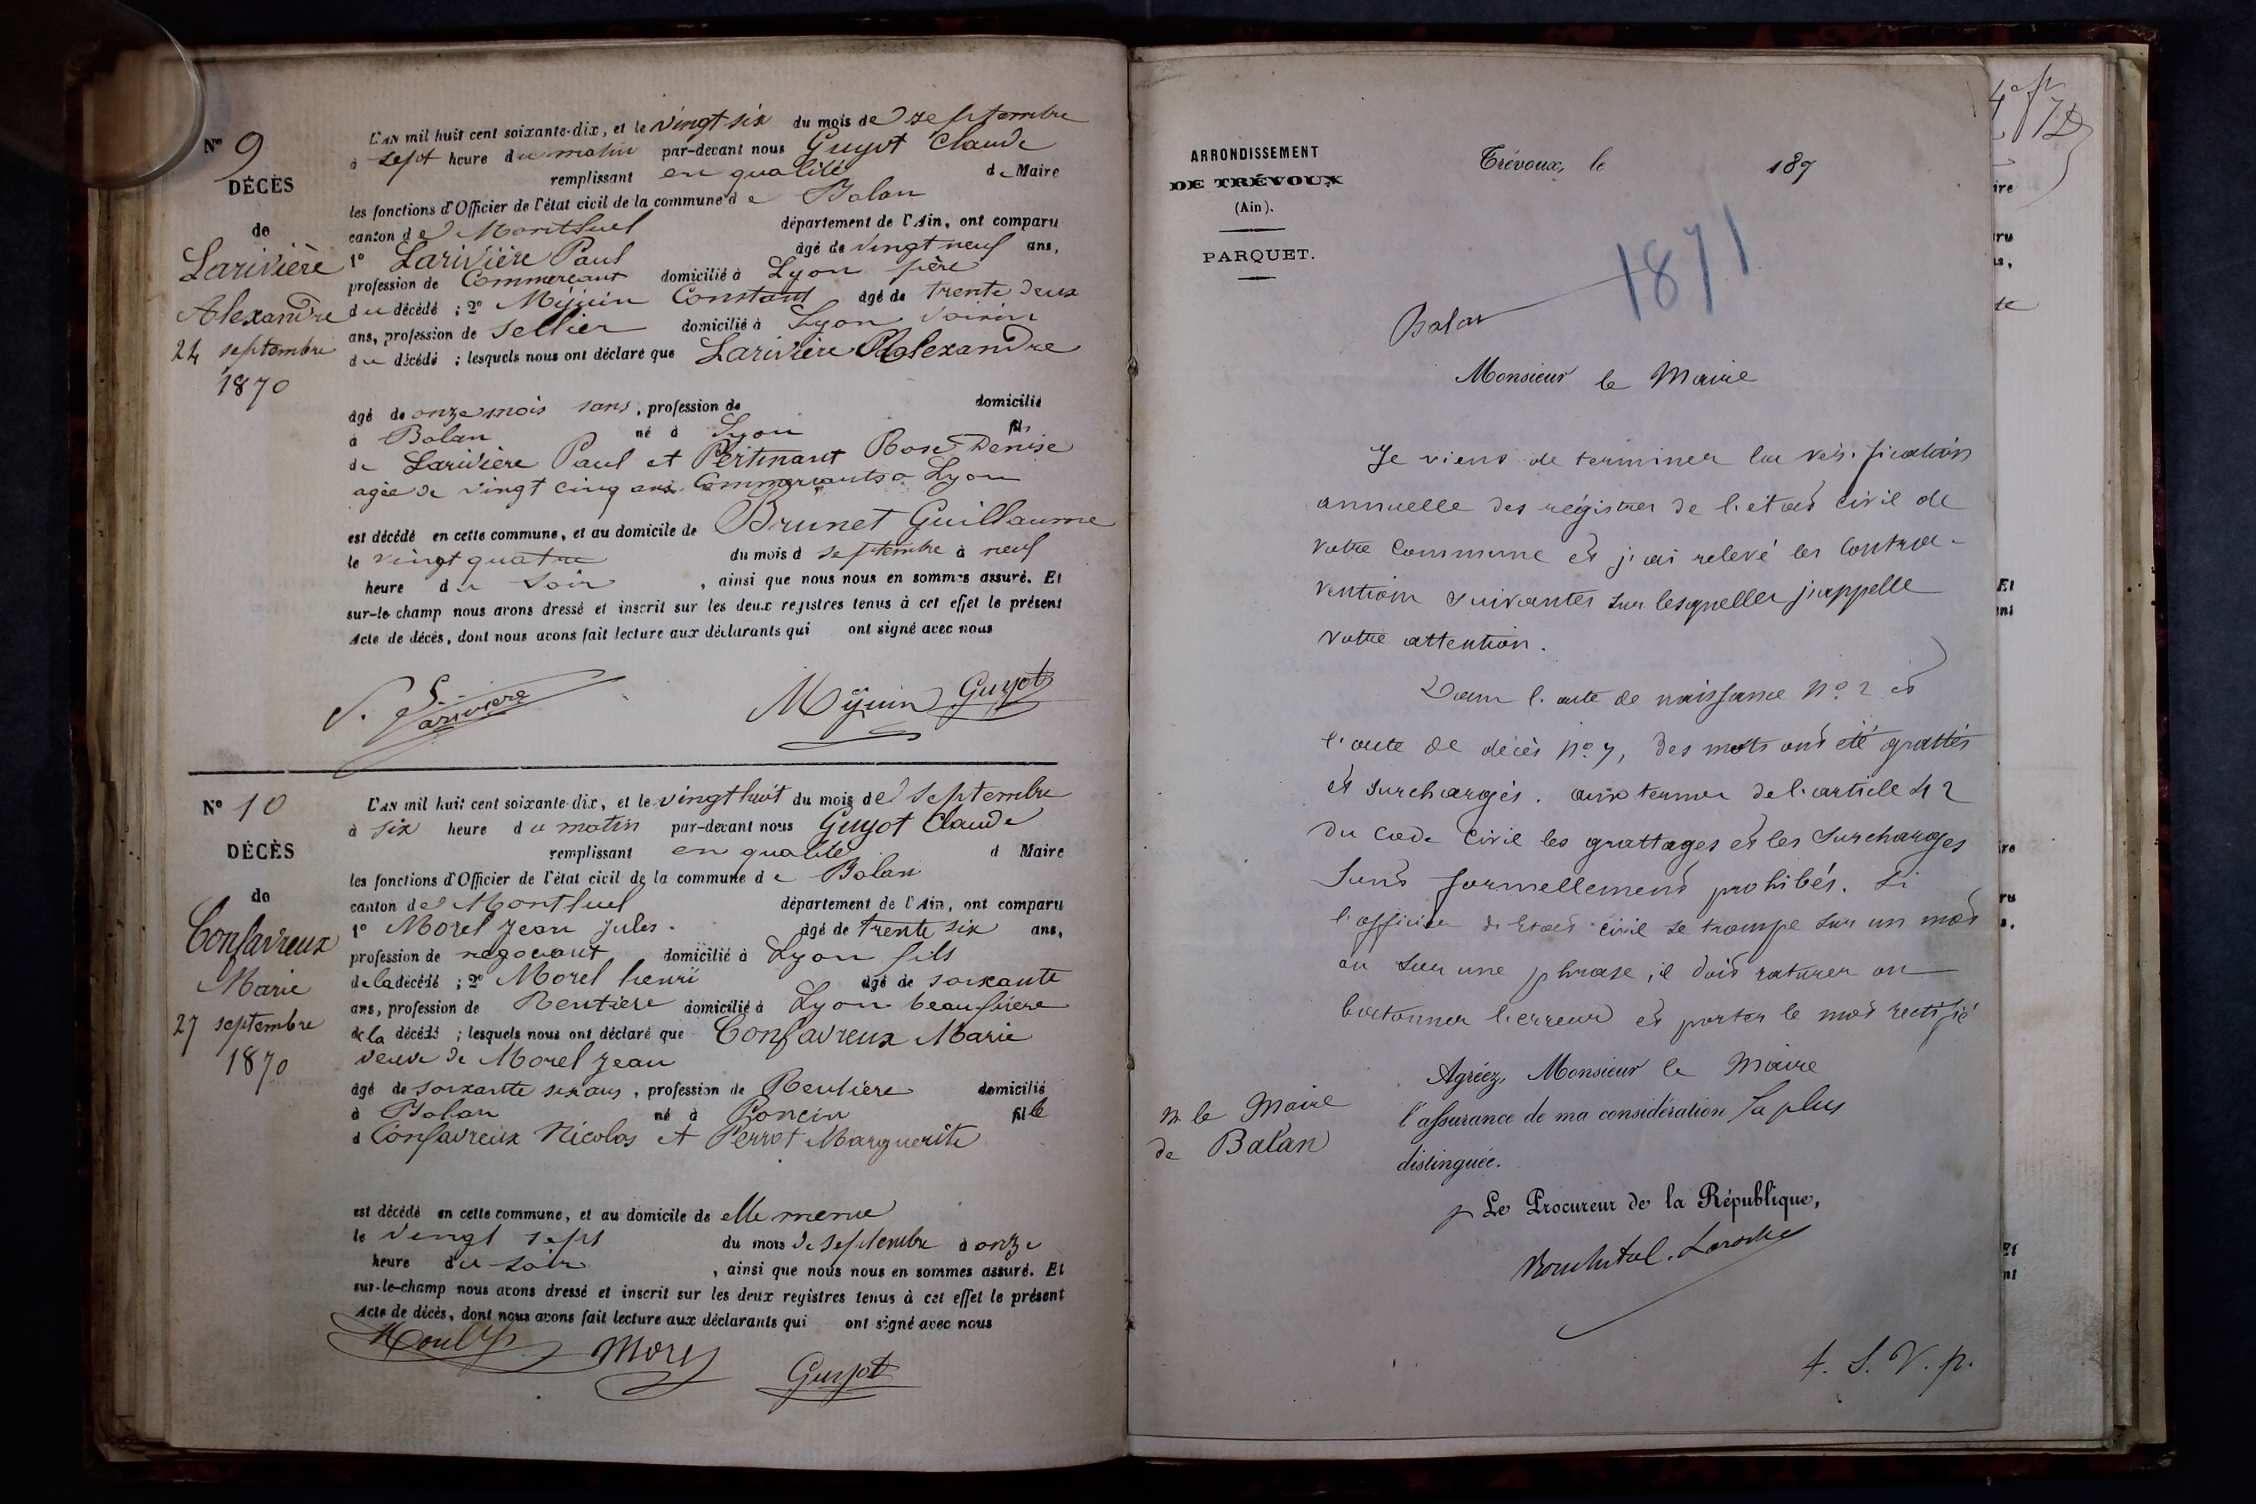 N° 9
DÉCÈS
de
Larivière
Alexandre
24 septembre
1870
L'AN mil huit cent soixante-dix, et le vingt six du mois de septembre
à sept heure du matin par-devant nous Guyot Claude
remplissant en qualité de Maire
les fonctions d'Officier de l'état civil de la commune de Balan
canton de Montluel département de l'Ain, ont comparu
1° Larivière Paul âgé de vingt neuf ans,
profession de Commerçant domicilié à Lyon père
du décédé ; 2° Mijuin Constant âgé de trente deux
ans, profession de sellier domicilié à Lyon voisin
du décédé ; lesquels nous ont déclaré que Larivière Alexandre
âgé de onze mois sans, profession de domicilié
à Balan né à Lyon fils
de Larivière Paul et Pertinant Rose Denise
agée de vingt cinq ans Commerçants a Lyon
est décédé en cette commune, et au domicile de Brunet Guillaume
le vingt quatre du mois d septembre à neuf
heure du soir, ainsi que nous nous en sommes assuré. Et
sur-le champ nous avons dressé et inscrit sur les deux registres tenus à cet effet le présent
Acte de décès, dont nous avons fait lecture aux déclarants qui ont signé avec nous
Larivière Mijuin Guyot
N° 10
DÉCÈS
de
Confavreux
Marie
27 septembre
1870
L'AN mil huit cent soixante-dix, et le vingt huit du mois de septembre
à six heure du matin par-devant nous Guyot Claude
remplissant en qualité d Maire
les fonctions d'Officier de l'état civil de la commune de Balan
canton de Montluel département de l'Ain, ont comparu
1° Morel Jean Jules. âgé de trente six ans,
profession de negociant domicilié à Lyon fils
de la décédé ; 2° Morel henri âgé de soixante
ans, profession de Rentière domicilié à Lyon beau frère
de la décédé ; lesquels nous ont déclaré que Confavreux Marie
veuve de Morel Jean
âgé de soixante six ans, profession de Rentière domicilié
à Balan né à Poncin fille
d Confavreux Nicolas et Perrot Marguerite
est décédé en cette commune, et au domicile de elle meme
le vingt sept du mois de septembre à onze
heure du soir, ainsi que nous nous en sommes assuré. Et
sur-le-champ nous avons dressé et inscrit sur les deux registres tenus à cet effet le présent
Acte de décès, dont nous avons fait lecture aux déclarants qui ont signé avec nous
Morel Guyot
ARRONDISSEMENT
DE TRÉVOUX
(Ain).
PARQUET.
Trévoux, le 187
1871
Balan
Monsieur le Maire
Je viens de terminer la vérification
annuelle des régistres de l'état civil de
votre commune et j'ai relevé les contra-
ventions suivantes sur lesquelles j'appelle
votre attention.
Dans l'acte de naissance N° 2 et
l'acte de décès N° 7, des mots ont été grattés
et surchargés. aux termes de l'article 42
du code civil les grattages et les surcharges
sont formellement prohibés. Si
l'officier d'Etat civil se trompe sur un mot
ou sur une phrase, il doit raturer ou
batonner l'erreur et porter le mot rectifié
Agréez, Monsieur le Maire
l'assurance de ma considération la plus
distinguée.
M le Maire
de Balan
p Le Procureur de la République,
t. S. V. p.